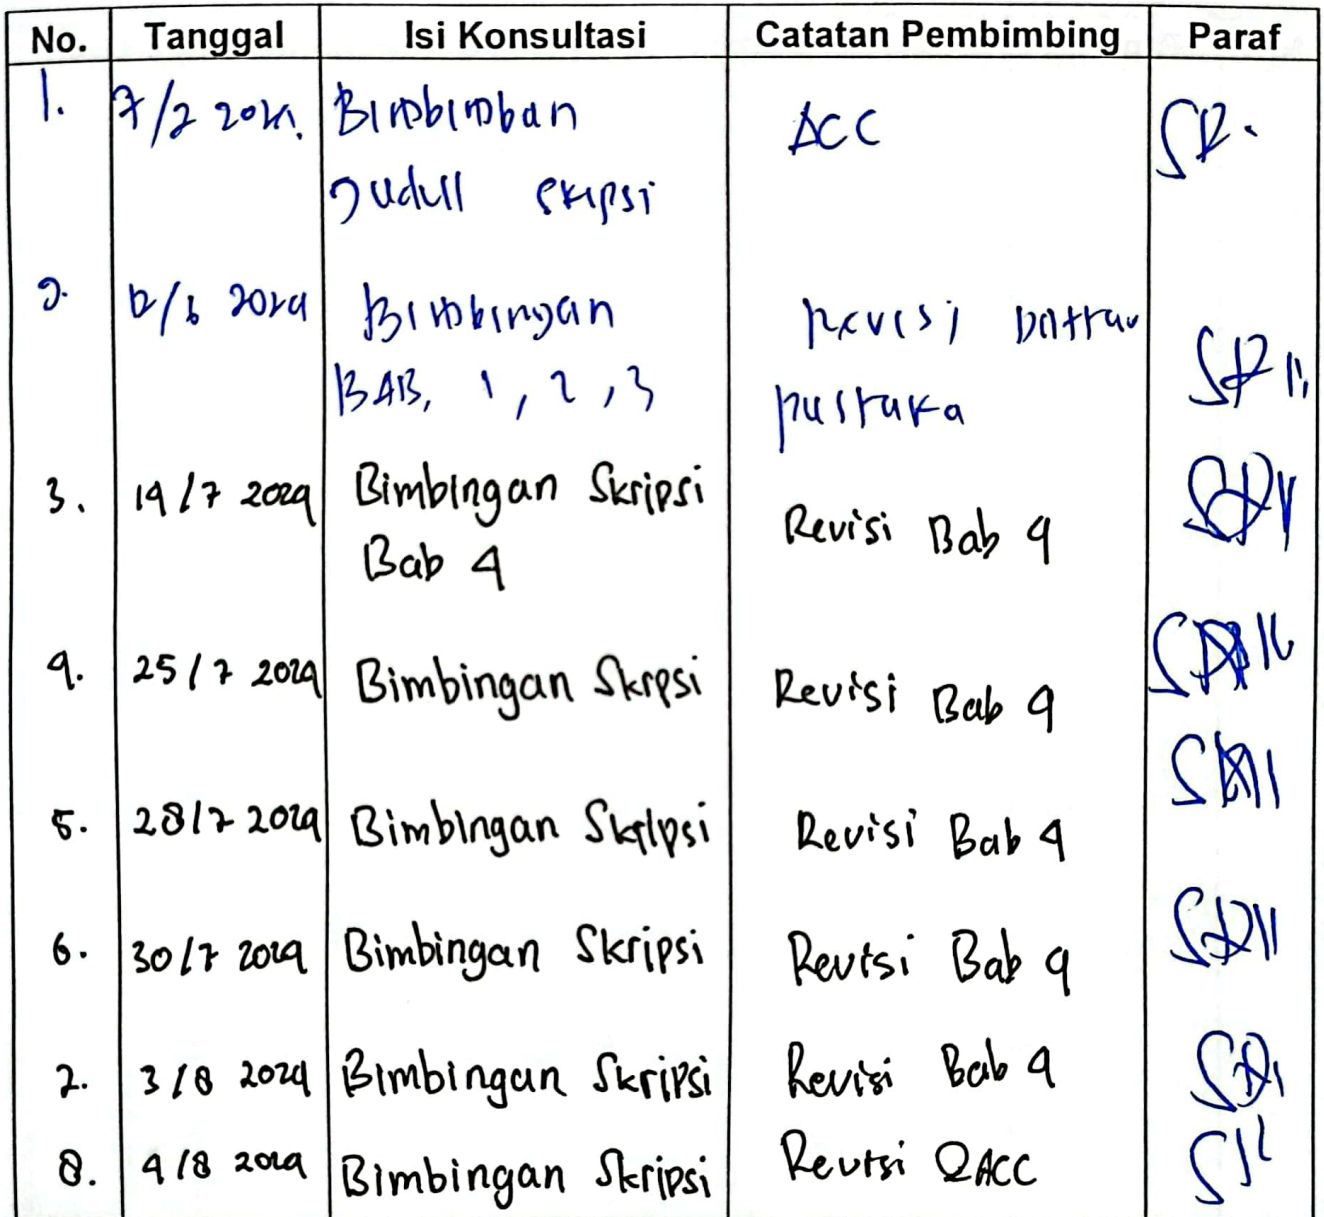 No. Tanggal Isi Konsultasi Catatan Pembimbing Paraf
1. 7/2 2024. Bimbimban ACC
Judull skripsi
2. 12/6 2024 Bimbingan Revisi Daftar
BAB, 1, 2, 3 pustaka
3. 19/7 2024 Bimbingan Skripsi Revisi Bab 4
Bab 4
4. 25/7 2024 Bimbingan Skripsi Revisi Bab 4
5. 28/7 2024 Bimbingan Skripsi Revisi Bab 4
6. 30/7 2024 Bimbingan Skripsi Revisi Bab 4
7. 3/8 2024 Bimbingan Skripsi Revisi Bab 4
8. 4/8 2024 Bimbingan Skripsi Revisi ACC